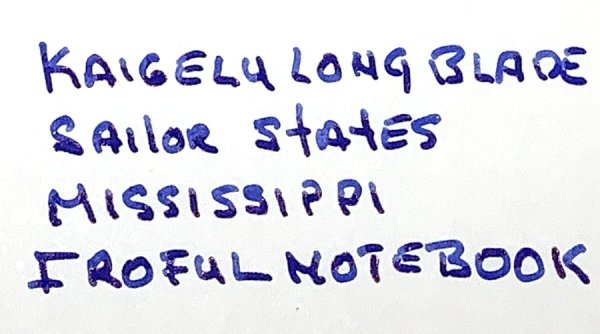 KAIGELU LONG BLADE
SAIloR StAtES
MISSISSIPPI
IROFUL NOTEBOOK